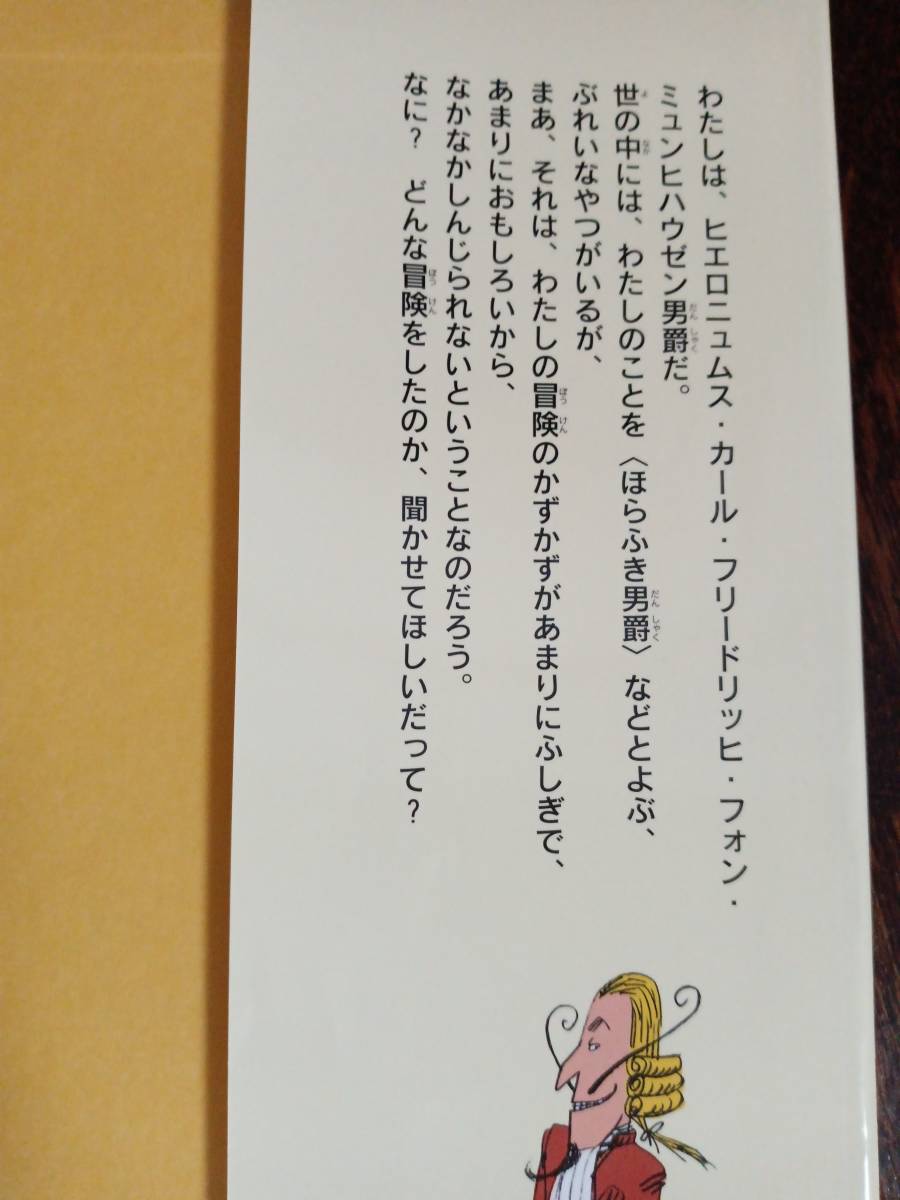 わたしは、ヒエロニュムス・カール・フリードリッヒ・フォン・
ミュンヒハウゼン男爵だ。
世の中には、わたしのことを〈ほらふき男爵〉などとよぶ、
ぶれいなやつがいるが、
まあ、それは、わたしの冒険のかずかずがあまりにふしぎで、
あまりにおもしろいから、
なかなかしんじられないということなのだろう。
なに？　どんな冒険をしたのか、聞かせてほしいだって？